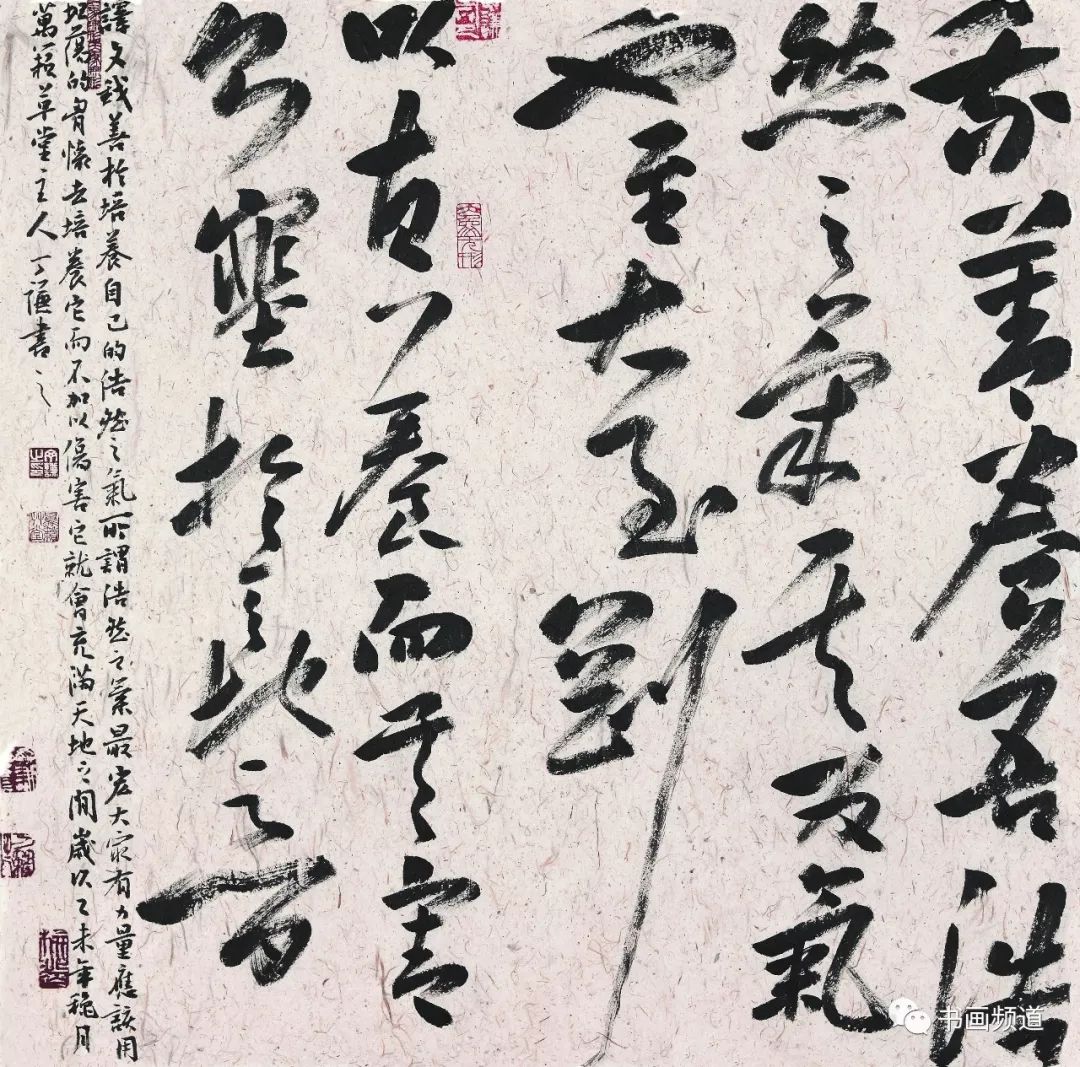 我善養吾浩
然之氣其为氣
也至大至剛
以直養而无害
则塞於天地之間
譯文我善於培養自己的浩然之氣所謂浩然之氣最宏大最有力量應該用
坦蕩的胷懷去培養它而不加以傷害它就會充滿天地之間歲次乙未年穐月
萬草堂主人丁謙書之
书画频道